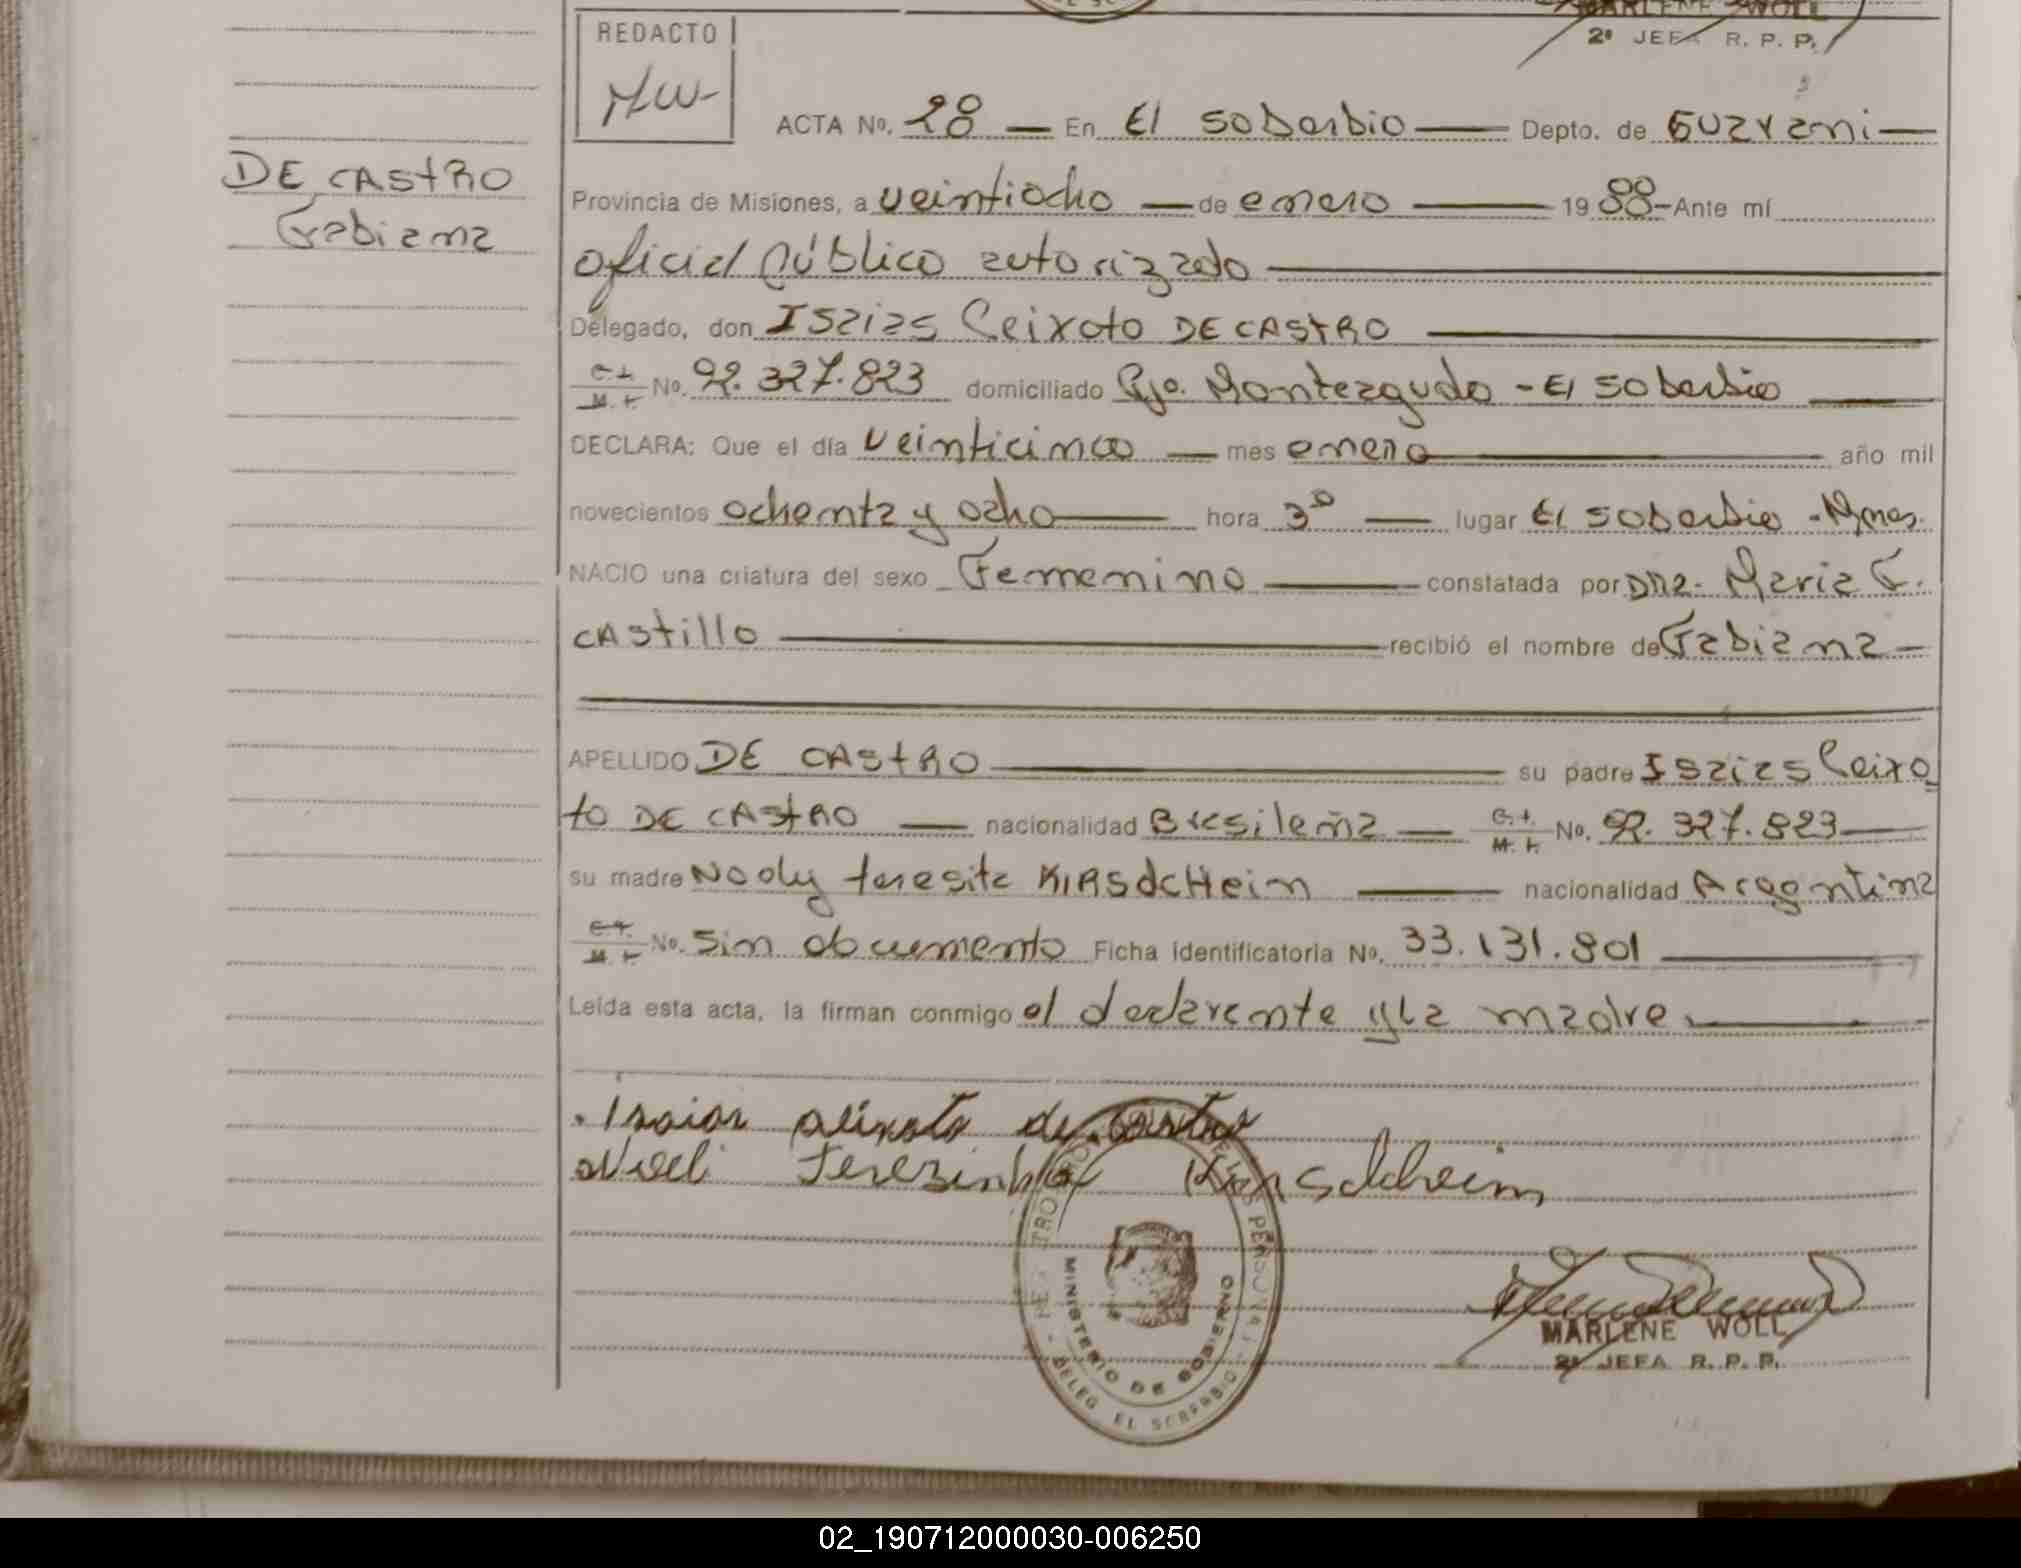 MARLENE WOLL
2º JEFA R. P. P.
REDACTO
MW-
ACTA Nº. 28 — En El Soberbio — Depto. de Guarani —
DE CASTRO
Fabiana
Provincia de Misiones, a veintiocho — de enero — 1988 - Ante mí
oficial público autorizado
Delegado, don Isaias Peixoto DE CASTRO
C.I. M.I. No. 92.327.823 domiciliado Pje. Monteagudo - El Soberbio
DECLARA: Que el día veinticinco — mes enero — año mil
novecientos ochenta y ocho — hora 3º — lugar El Soberbio - Mnes.
NACIO una criatura del sexo Femenino — constatada por Dra. Maria F.
CASTILLO — recibió el nombre de Fabiana —
APELLIDO DE CASTRO — su padre Isaias Peixo
to DE CASTRO — nacionalidad Brasileña — C.I. M.I. No. 92.327.823 —
su madre Noely teresita KIRSDCHEIM — nacionalidad Argentina
C.I. M.I. No. Sin documento Ficha identificatoria No. 33.131.801 —
Leída esta acta, la firman conmigo el declarante y la madre. —
Isaias peixoto de Castro
Noeli Terezinha Kirsdcheim
MINISTERIO DE GOBIERNO
DELEG. EL SOBERBIO
MARLENE WOLL
2º JEFA R. P. P.
02_190712000030-006250